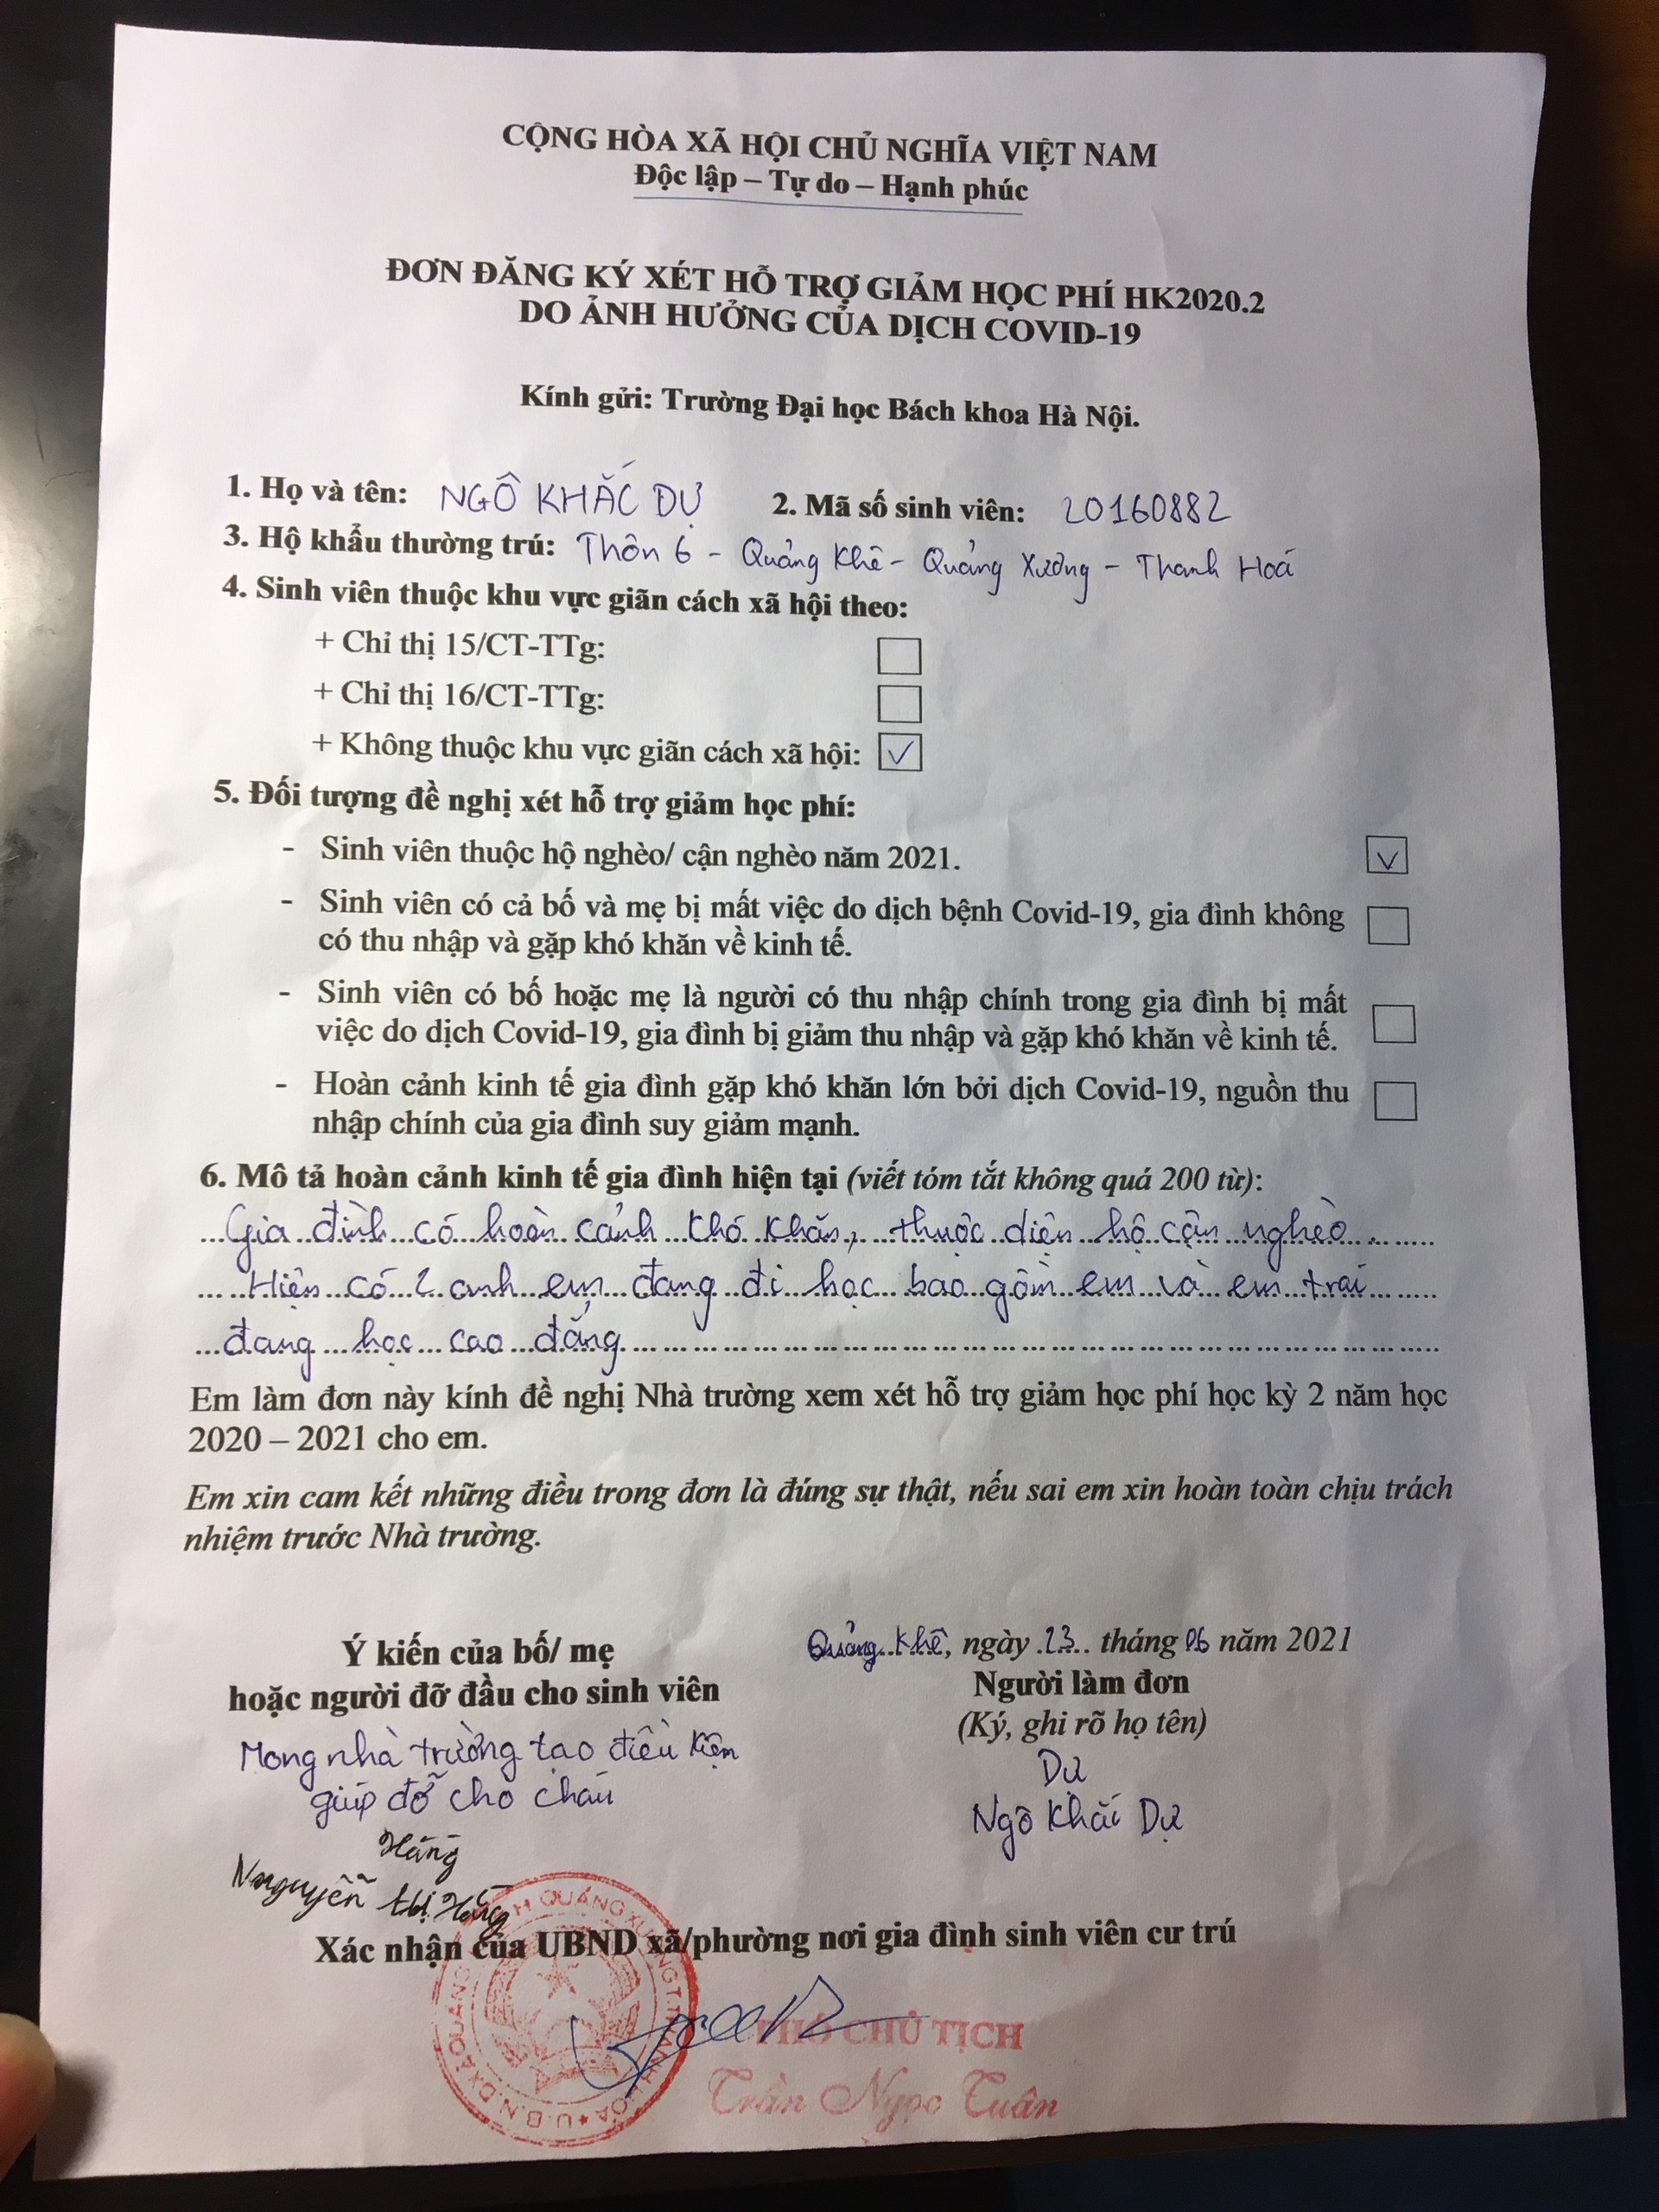 CỘNG HÒA XÃ HỘI CHỦ NGHĨA VIỆT NAM
Độc lập – Tự do – Hạnh phúc
ĐƠN ĐĂNG KÝ XÉT HỖ TRỢ GIẢM HỌC PHÍ HK2020.2
DO ẢNH HƯỞNG CỦA DỊCH COVID-19
Kính gửi: Trường Đại học Bách khoa Hà Nội.
1. Họ và tên: NGÔ KHẮC DỰ 2. Mã số sinh viên: 20160882
3. Hộ khẩu thường trú: Thôn 6 - Quảng Khê - Quảng Xương - Thanh Hoá
4. Sinh viên thuộc khu vực giãn cách xã hội theo:
+ Chỉ thị 15/CT-TTg:
+ Chỉ thị 16/CT-TTg:
+ Không thuộc khu vực giãn cách xã hội: ✓
5. Đối tượng đề nghị xét hỗ trợ giảm học phí:
- Sinh viên thuộc hộ nghèo/ cận nghèo năm 2021. ✓
- Sinh viên có cả bố và mẹ bị mất việc do dịch bệnh Covid-19, gia đình không
có thu nhập và gặp khó khăn về kinh tế.
- Sinh viên có bố hoặc mẹ là người có thu nhập chính trong gia đình bị mất
việc do dịch Covid-19, gia đình bị giảm thu nhập và gặp khó khăn về kinh tế.
- Hoàn cảnh kinh tế gia đình gặp khó khăn lớn bởi dịch Covid-19, nguồn thu
nhập chính của gia đình suy giảm mạnh.
6. Mô tả hoàn cảnh kinh tế gia đình hiện tại (viết tóm tắt không quá 200 từ):
Gia đình có hoàn cảnh khó khăn, thuộc diện hộ cận nghèo
Hiện có 2 anh em đang đi học bao gồm em và em trai
đang học cao đẳng
Em làm đơn này kính đề nghị Nhà trường xem xét hỗ trợ giảm học phí học kỳ 2 năm học
2020 – 2021 cho em.
Em xin cam kết những điều trong đơn là đúng sự thật, nếu sai em xin hoàn toàn chịu trách
nhiệm trước Nhà trường.
Quảng Khê, ngày 23 tháng 06 năm 2021
Ý kiến của bố/ mẹ
hoặc người đỡ đầu cho sinh viên
Mong nhà trường tạo điều kiện
giúp đỡ cho cháu
Hằng
Nguyễn thị Hằng
Người làm đơn
(Ký, ghi rõ họ tên)
Dự
Ngô Khắc Dự
Xác nhận của UBND xã/phường nơi gia đình sinh viên cư trú
PHÓ CHỦ TỊCH
Trần Ngọc Tuân